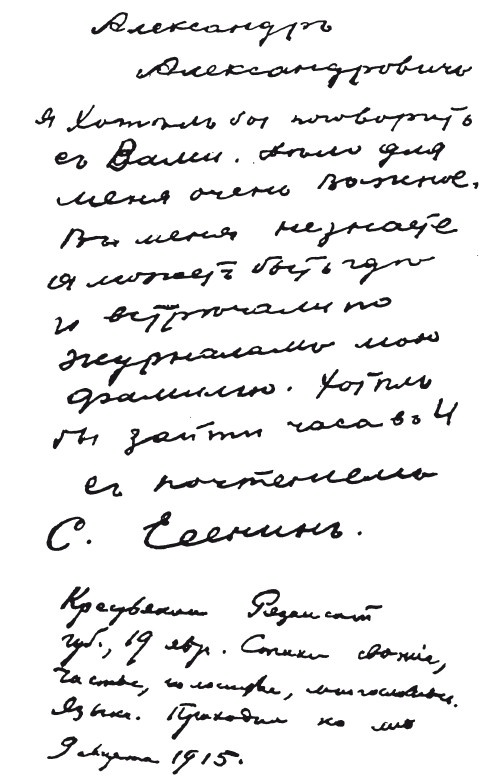 Александръ
Александровичъ
я Хотѣлъ бы поговорить
съ Вами. дѣло для
меня очень важное.
Вы меня незнаете
я можетъ быть гдѣ
и встрѣчали по
журналамъ мою
фамилию. Хотѣлъ
бы зайти часа въ 4
съ почтениемъ
С. Есенинъ.
Крестьянин Рязанской
губ., 19 лѣт. Стихи свѣжіе,
чистые, голосистые, многословные.
Языкъ. Приходил ко мнѣ
9 марта 1915.